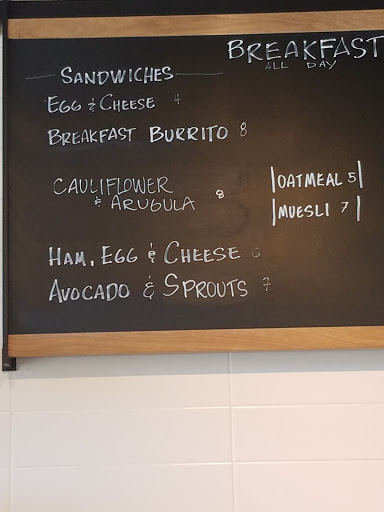 BREAKFAST
ALL DAY
SANDWICHES
EGG & CHEESE 4
BREAKFAST BURRITO 8
CAULIFLOWER
& ARUGULA 8
OATMEAL 5
MUESLI 7
HAM, EGG & CHEESE 6
AVOCADO & SPROUTS 7